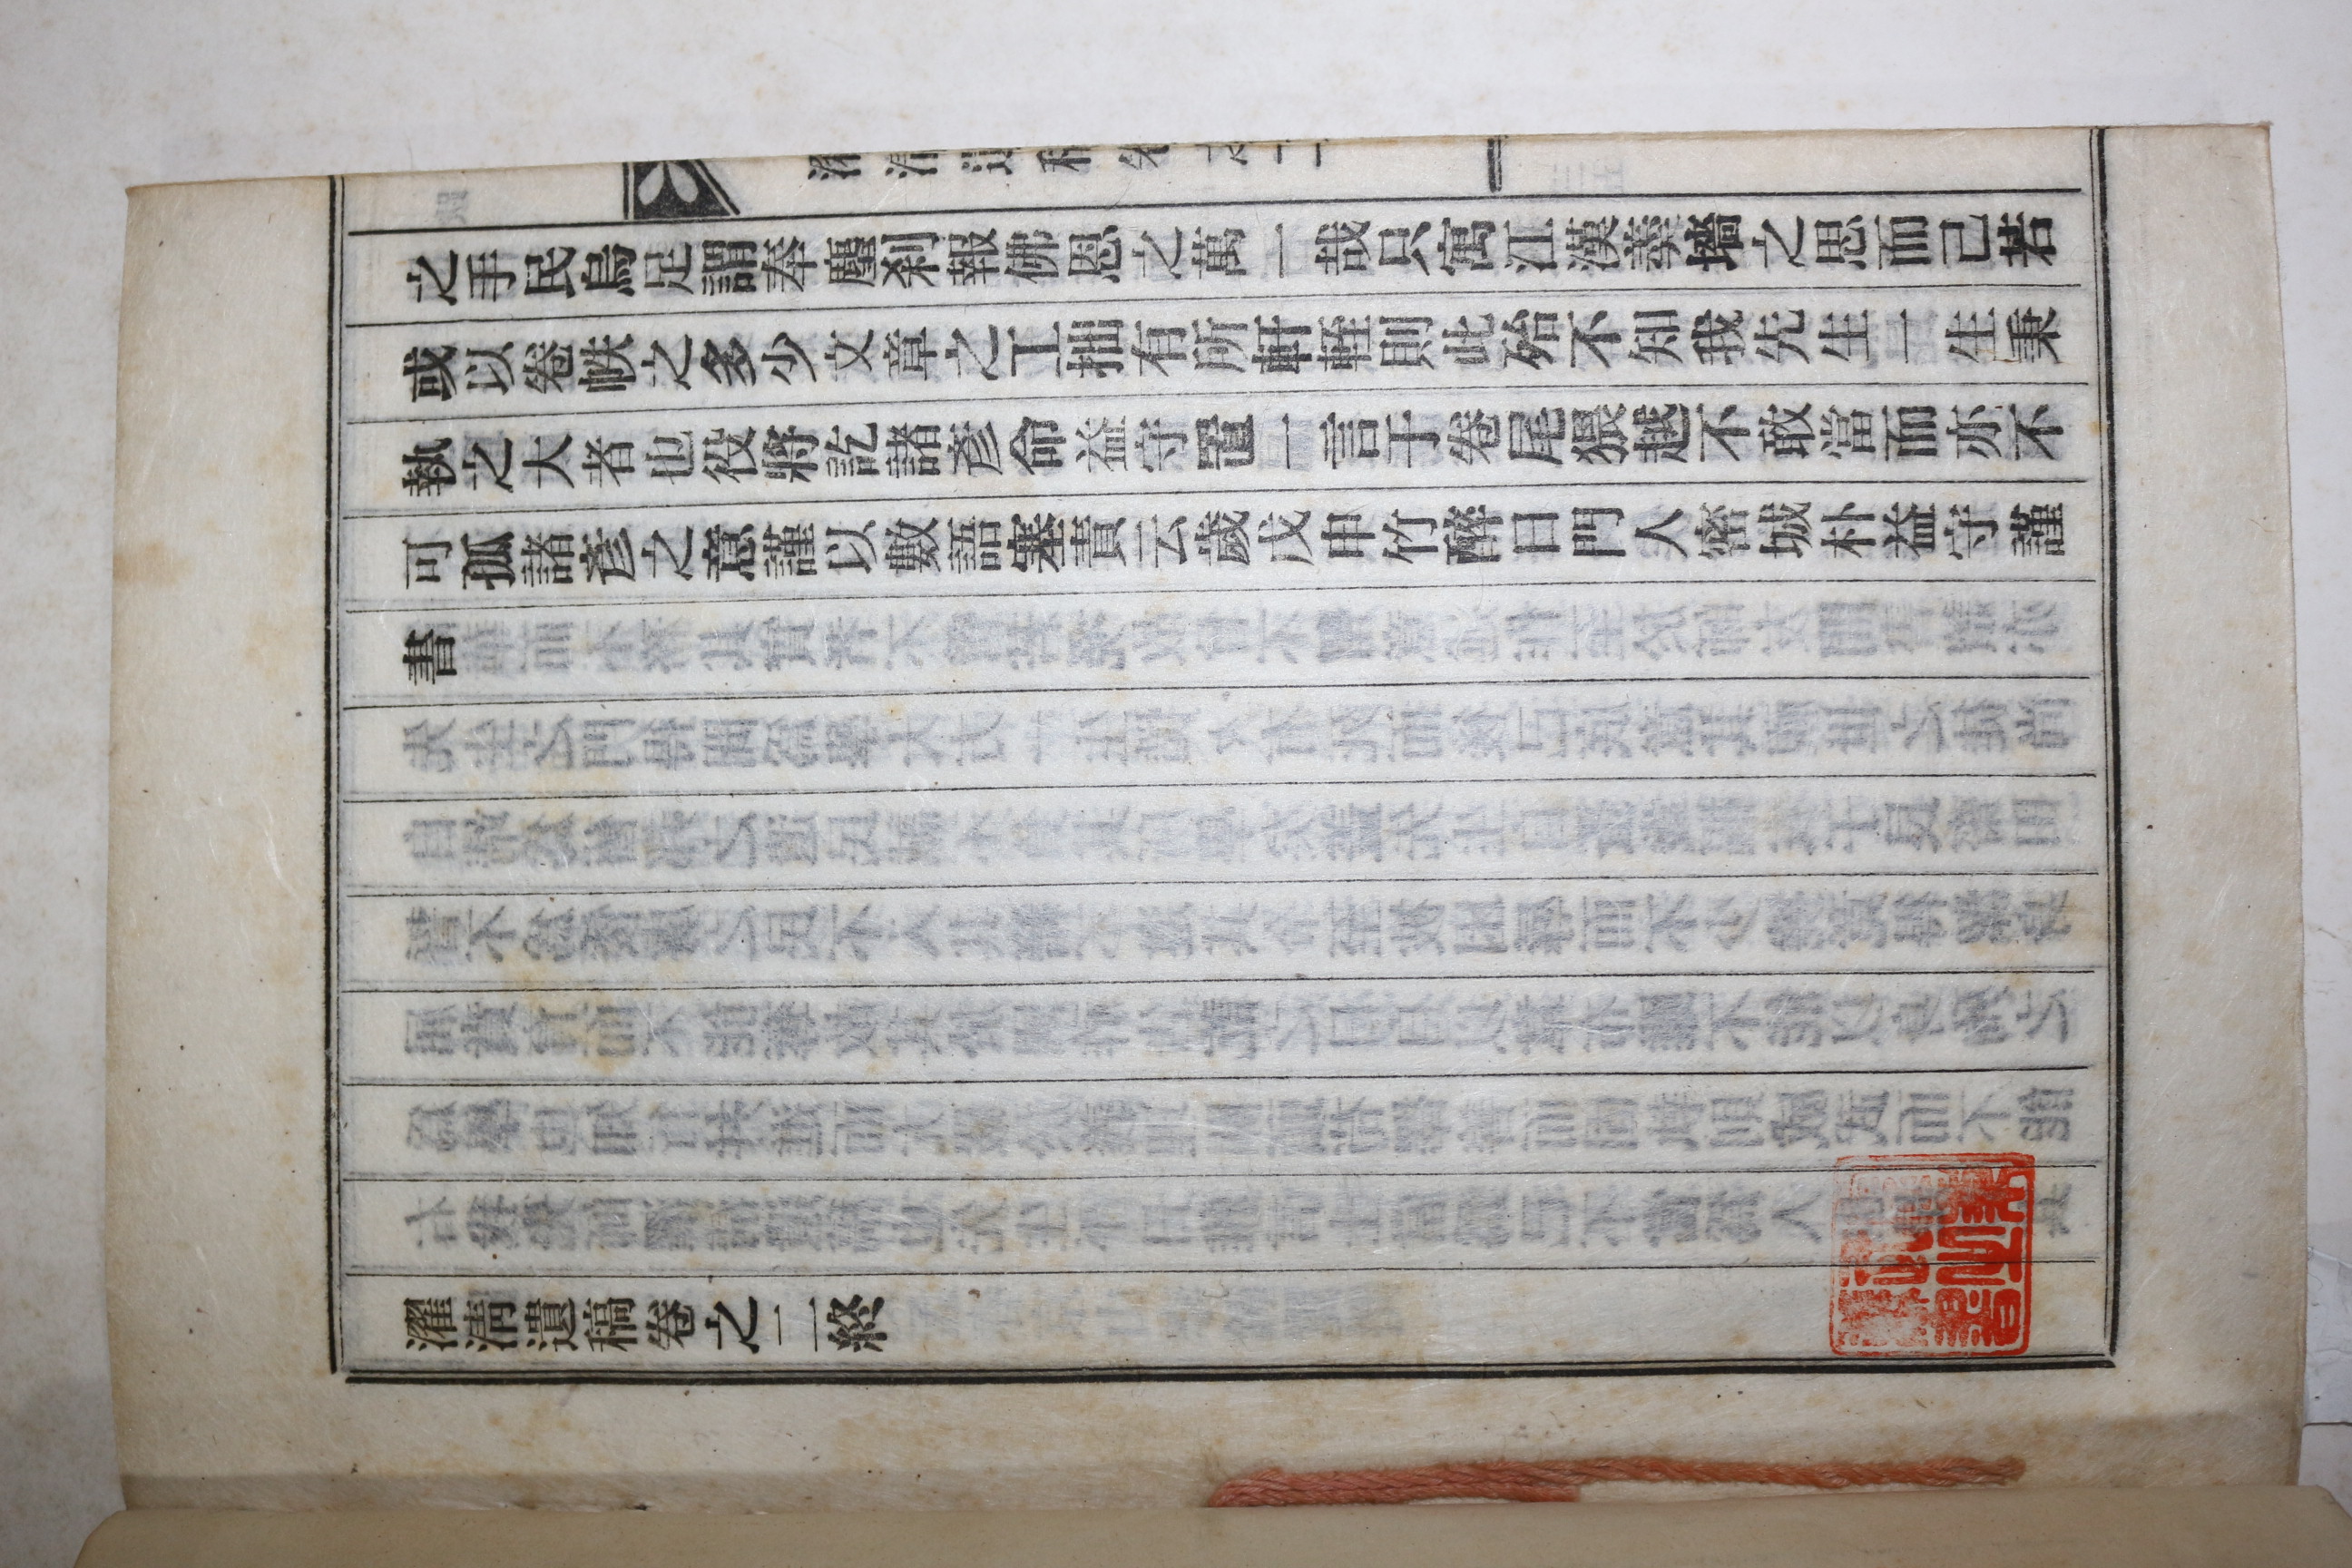 濯清遺稿卷之二
之手民烏足謂奉塵刹報佛恩之萬一哉只寓江漢羹墻之思而已若
或以卷帙之多少文章之工拙有所軒輊則此殆不知我先生一生秉
執之大者也役將訖諸彥命益守置一言于卷尾猥越不敢當而亦不
可孤諸彥之意謹以數語塞責云歲戊申竹醉日門人密城朴益守謹
書
濯清遺稿卷之二終